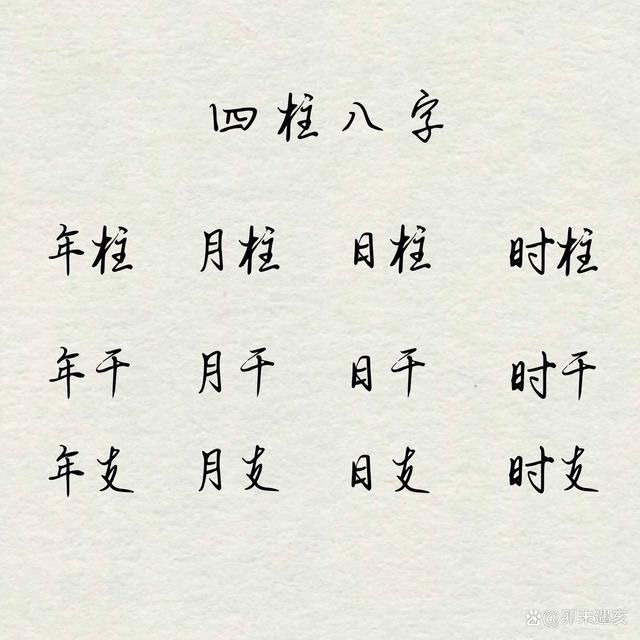 四柱八字
年柱 月柱 日柱 时柱
年干 月干 日干 时干
年支 月支 日支 时支
@卯未遇亥